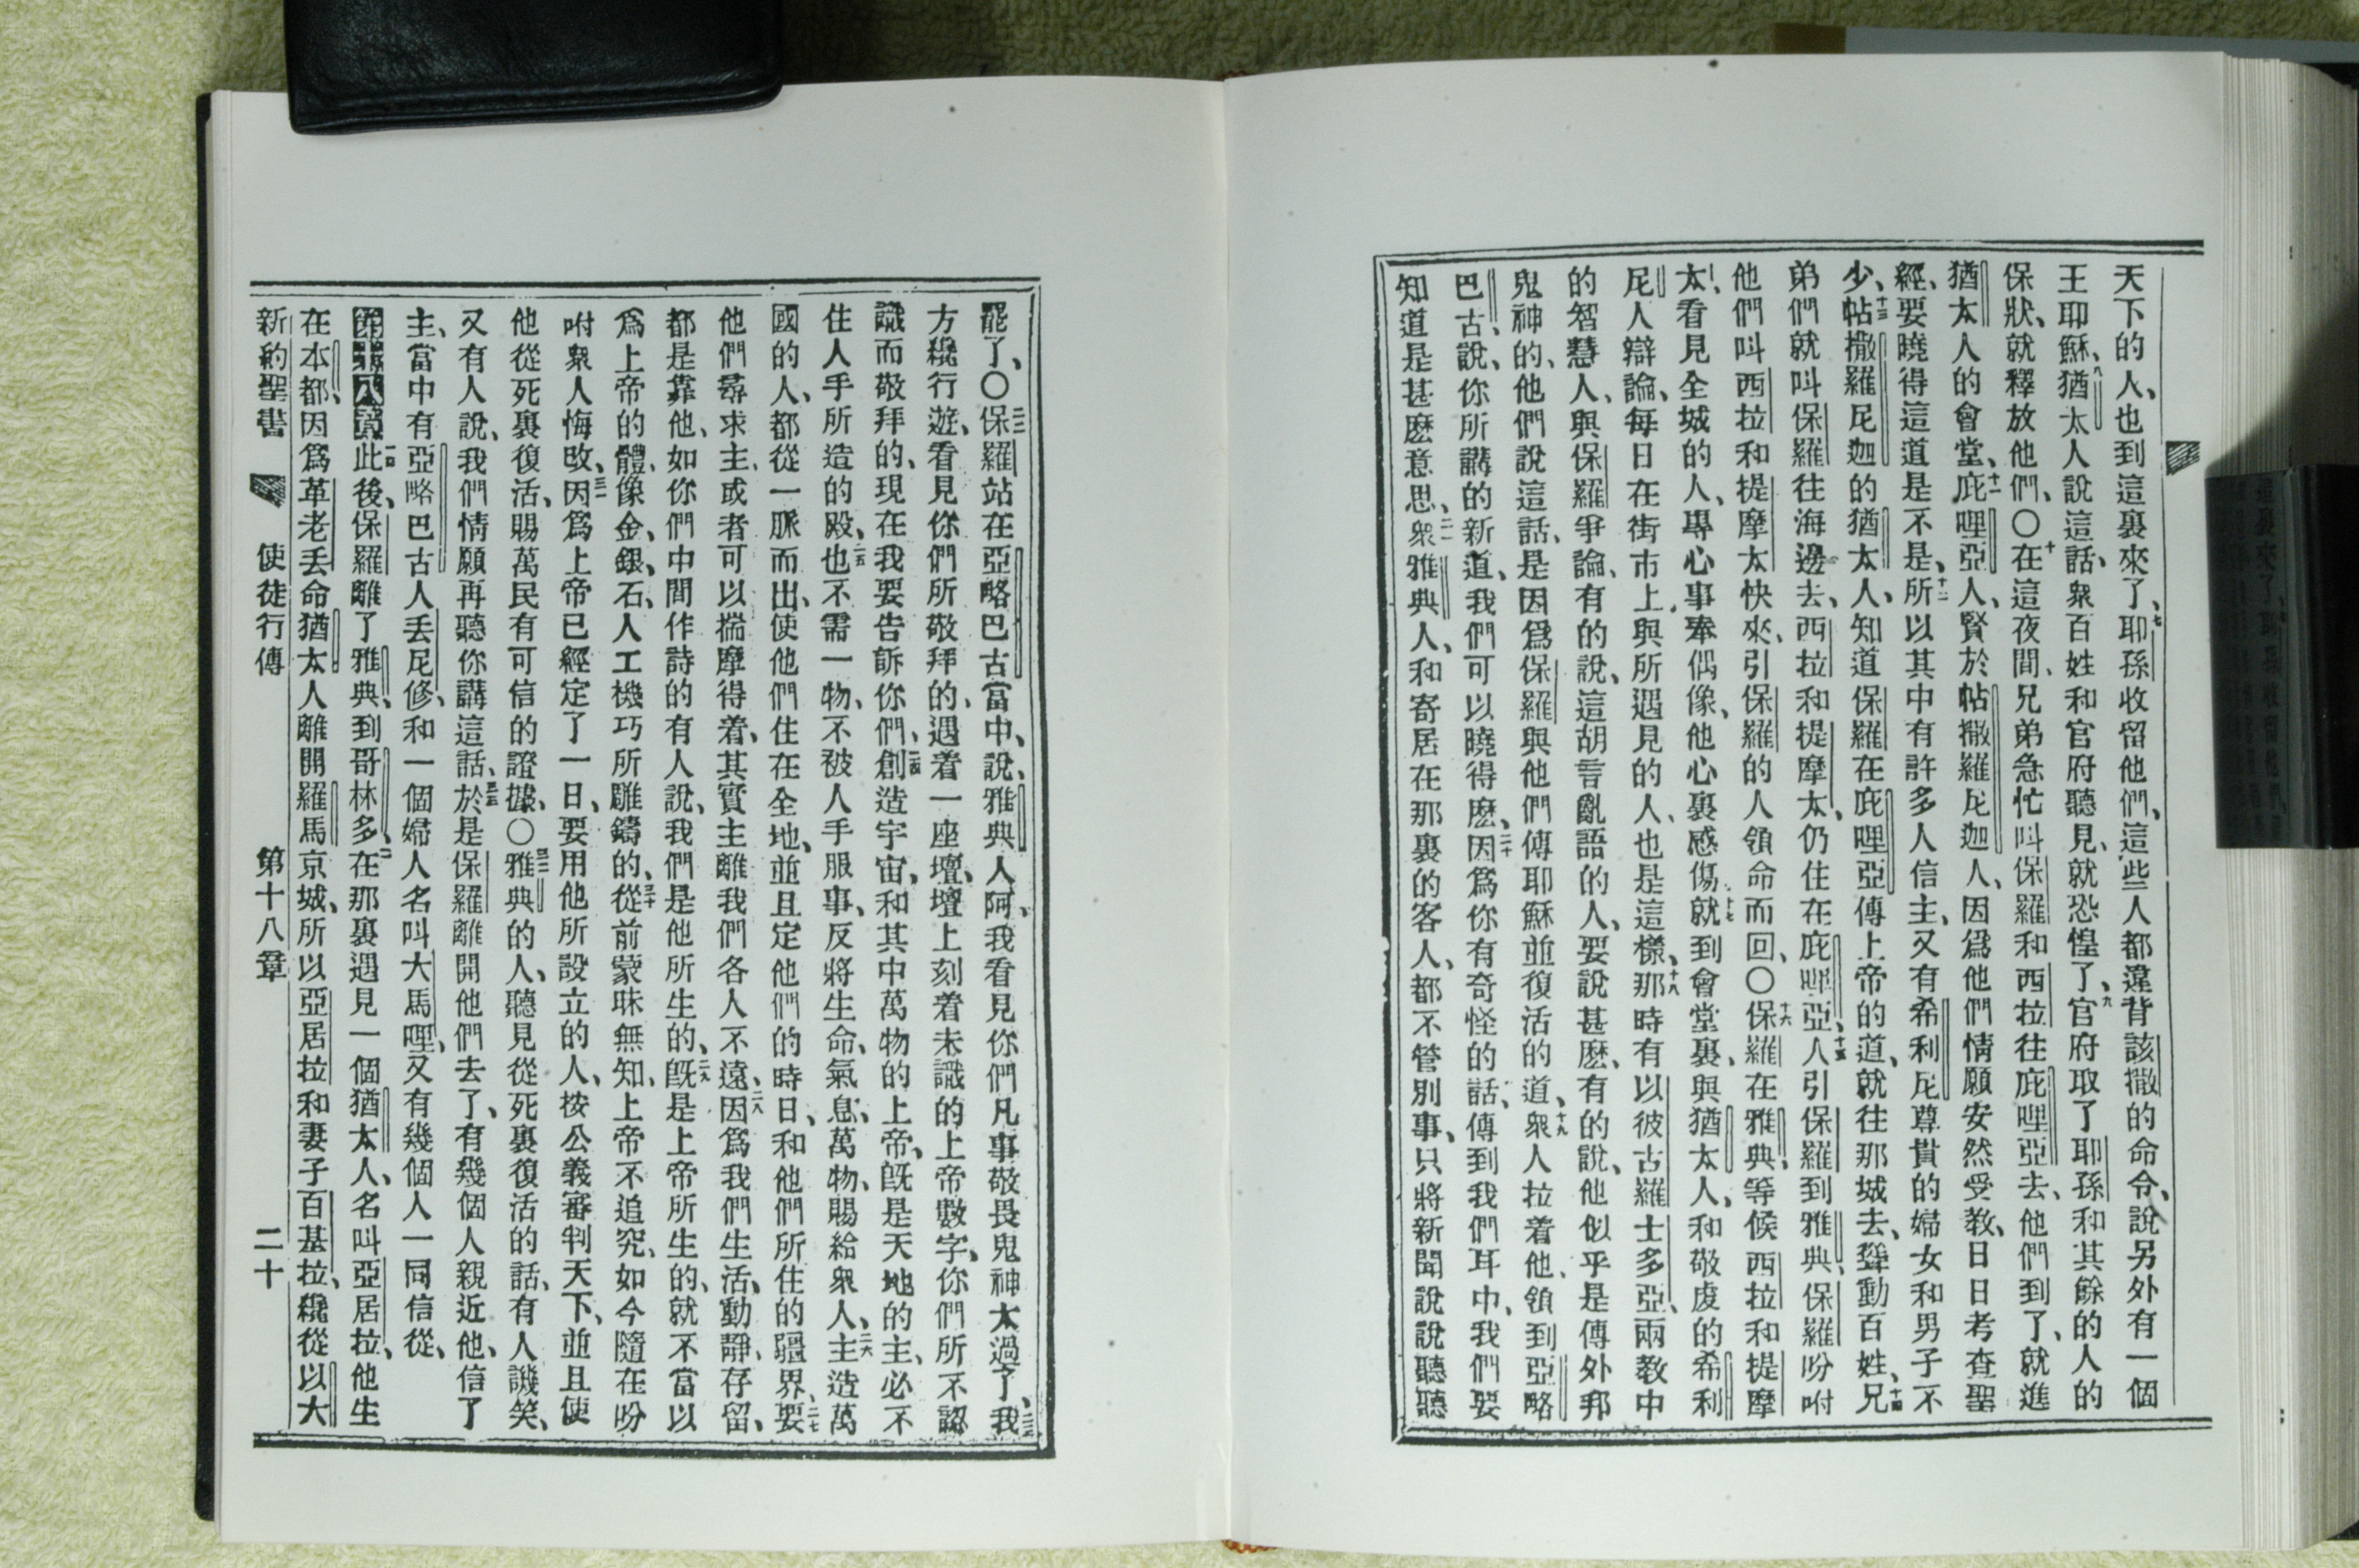 天下的人、也到這裏來了、七耶孫收留他們、這些人都違背該撒的命令、說另外有一個
王耶穌、八猶太人說這話、衆百姓和官府聽見、就恐惶了、九官府取了耶孫和其餘的人的
保狀、就釋放他們、〇十在這夜間、兄弟急忙叫保羅和西拉往庇哩亞去、他們到了、就進
猶太人的會堂、十一庇哩亞人、賢於帖撒羅尼迦人、因爲他們情願安然受敎、日日考查聖
經、要曉得這道是不是、十二所以其中有許多人信主、又有希利尼尊貴的婦女和男子不
少、十三帖撒羅尼迦的猶太人、知道保羅在庇哩亞傳上帝的道、就往那城去、聳動百姓、十四兄
弟們就叫保羅往海邊去、西拉和提摩太仍住在庇哩亞、十五人引保羅到雅典、保羅吩咐
他們叫西拉和提摩太快來、引保羅的人領命而回、〇十六保羅在雅典、等候西拉和提摩
太、看見全城的人、專心事奉偶像、他心裏感傷、十七就到會堂裏、與猶太人、和敬虔的希利
尼人辯論、每日在街市上、與所遇見的人、也是這樣、十八那時有以彼古羅士多亞、兩敎中
的智慧人、與保羅爭論、有的說、這胡言亂語的人、要說甚麽、有的說、他似乎是傳外邦
鬼神的、他們說這話、是因爲保羅與他們傳耶穌並復活的道、十九衆人拉着他、領到亞略
巴古、說、你所講的新道、我們可以曉得麽、二十因爲你有奇怪的話、傳到我們耳中、我們要
知道是甚麽意思、二一衆雅典人、和寄居在那裏的客人、都不管別事、只將新聞說說聽聽
罷了、〇二二保羅站在亞略巴古當中、說、雅典人阿、我看見你們凡事敬畏鬼神太過了、二三我
方纔行遊、看見你們所敬拜的、遇着一座壇、壇上刻着未識的上帝數字、你們所不認
識而敬拜的、現在我要吿訴你們、二四創造宇宙、和其中萬物的上帝、旣是天地的主、必不
住人手所造的殿、二五也不需一物、不被人手服事、反將生命、氣息、萬物、賜給衆人、二六主造萬
國的人、都從一脈而出、使他們住在全地、並且定他們的時日、和他們所住的疆界、二七要
他們尋求主、或者可以揣摩得着、其實主離我們各人不遠、二八因爲我們生活、動靜、存留、
都是靠他、如你們中間作詩的有人說、我們是他所生的、二九旣是上帝所生的、就不當以
爲上帝的體、像金、銀、石、人工機巧所雕鑄的、三十從前蒙昧無知、上帝不追究、如今隨在吩
咐衆人悔改、三一因爲上帝已經定了一日、要用他所設立的人、按公義審判天下、並且使
他從死裏復活、賜萬民有可信的證據、〇三二雅典的人、聽見從死裏復活的話、有人譏笑、
又有人說、我們情願再聽你講這話、三三於是保羅離開他們去了、三四有幾個人親近他、信了
主、當中有亞略巴古人丟尼修、和一個婦人名叫大馬哩、又有幾個人一同信從、
第十八章一此後、保羅離了雅典、到哥林多、二在那裏遇見一個猶太人、名叫亞居拉、他生
在本都、因爲革老丟命猶太人離開羅馬京城、所以亞居拉和妻子百基拉、纔從以大
新約聖書　使徒行傳　第十八章　二十